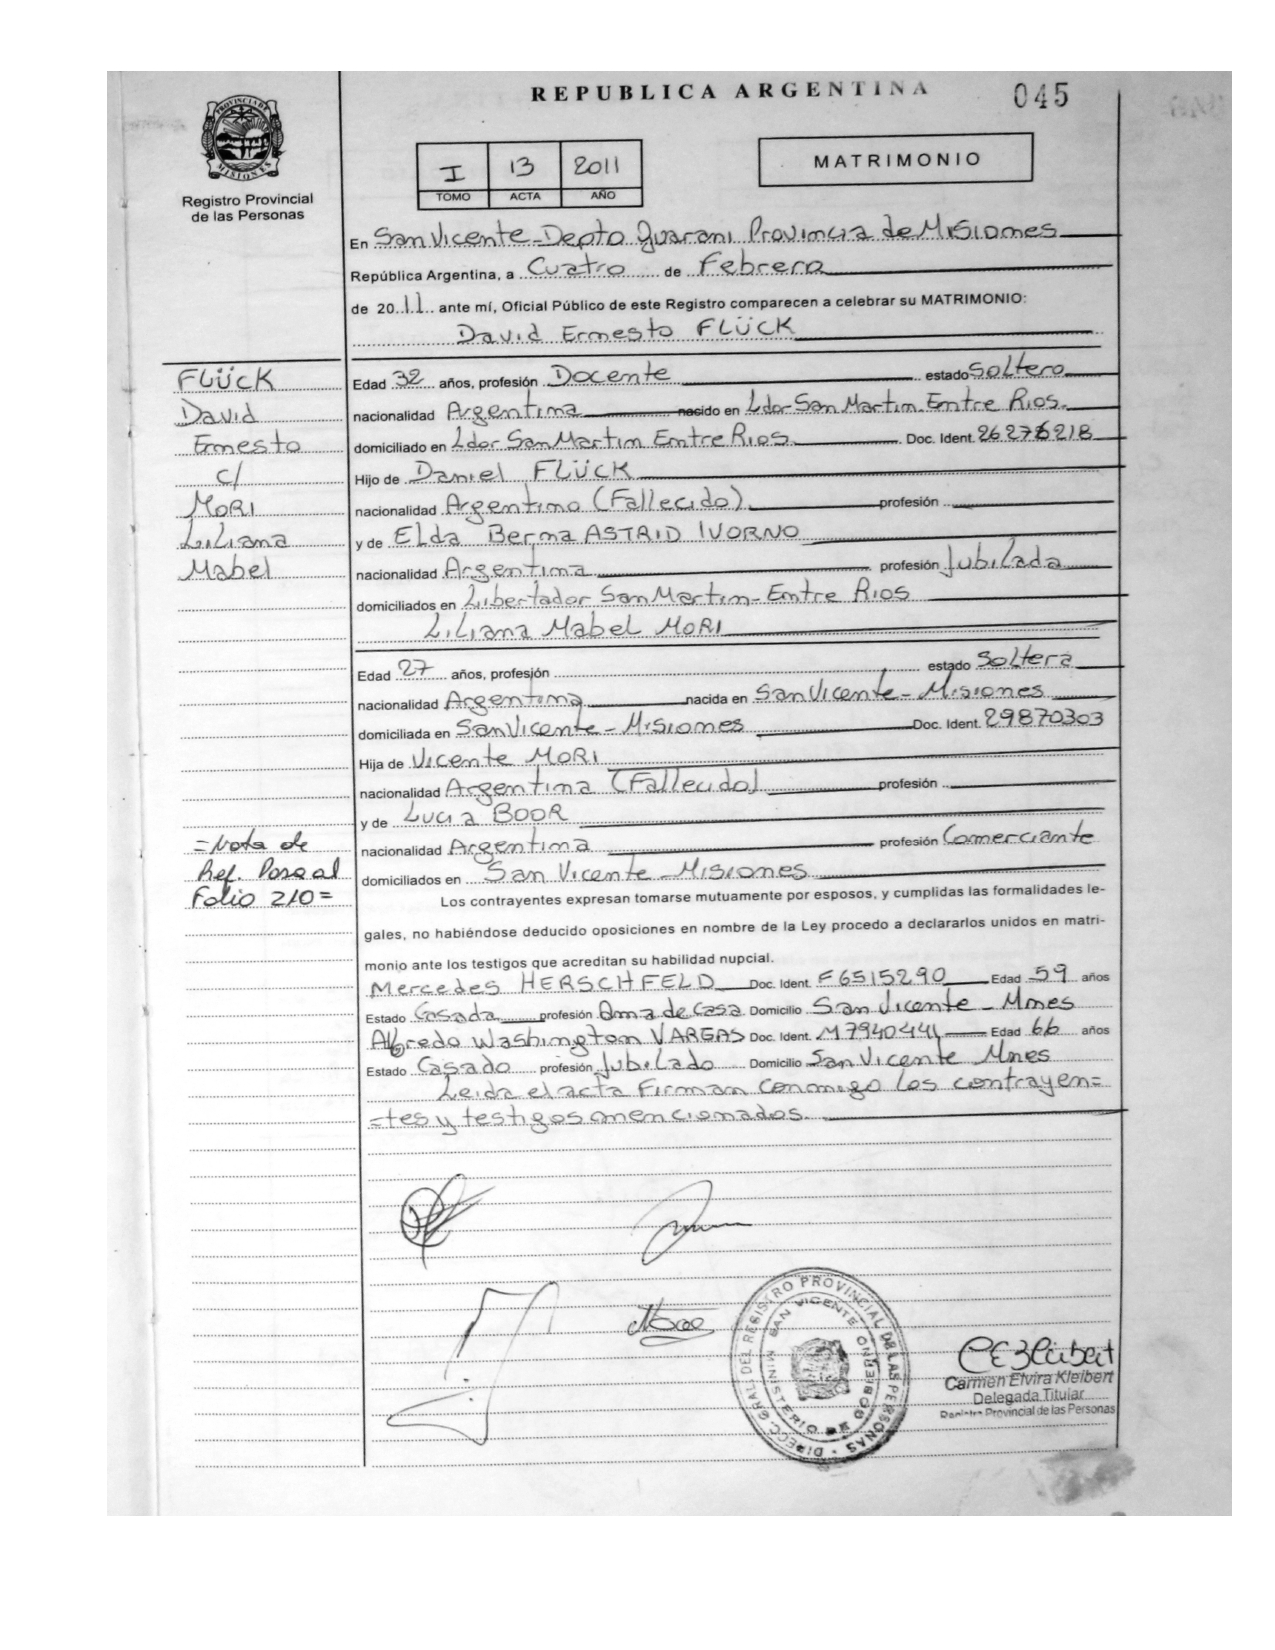 REPUBLICA ARGENTINA
045
PROVINCIA DE MISIONES
Registro Provincial
de las Personas
I 13 2011
TOMO ACTA AÑO
MATRIMONIO
En San Vicente - Depto Guarani Provincia de Misiones
República Argentina, a Cuatro de Febrero
de 2011 ante mí, Oficial Público de este Registro comparecen a celebrar su MATRIMONIO:
David Ernesto FLÜCK
FLÜCK
David
Ernesto
c/
MORI
Liliana
Mabel
Edad 32 años, profesión Docente estado Soltero
nacionalidad Argentina nacido en Ldor San Martin Entre Rios.
domiciliado en Ldor San Martin Entre Rios Doc. Ident. 26276218
Hijo de Daniel FLÜCK
nacionalidad Argentino (Fallecido) profesión
y de Elda Berma ASTRID IVORNO
nacionalidad Argentina profesión Jubilada
domiciliados en Libertador San Martin - Entre Rios
Liliana Mabel MORI
Edad 27 años, profesión estado Soltera
nacionalidad Argentina nacida en San Vicente - Misiones
domiciliada en San Vicente - Misiones Doc. Ident. 29870303
Hija de Vicente MORI
nacionalidad Argentina (Fallecido) profesión
y de Lucia BOOR
nacionalidad Argentina profesión Comerciante
domiciliados en San Vicente - Misiones
= Nota de
Ref. Pase al
Folio 210 =
Los contrayentes expresan tomarse mutuamente por esposos, y cumplidas las formalidades le-
gales, no habiéndose deducido oposiciones en nombre de la Ley procedo a declararlos unidos en matri-
monio ante los testigos que acreditan su habilidad nupcial.
Mercedes HERSCHFELD Doc. Ident. F6515290 Edad 59 años
Estado Casada profesión Ama de Casa Domicilio San Vicente - Mnes
Alfredo Washington VARGAS Doc. Ident. M7940441 Edad 66 años
Estado Casado profesión Jubilado Domicilio San Vicente Mnes
Leida el acta Firman conmigo los contrayen=
=tes y testigos mencionados.
DIRECC. GRAL. DEL REGISTRO PROVINCIAL DE LAS PERSONAS
SAN VICENTE
MINISTERIO DE GOBIERNO
Carmen Elvira Kleibert
Delegada Titular
Registro Provincial de las Personas